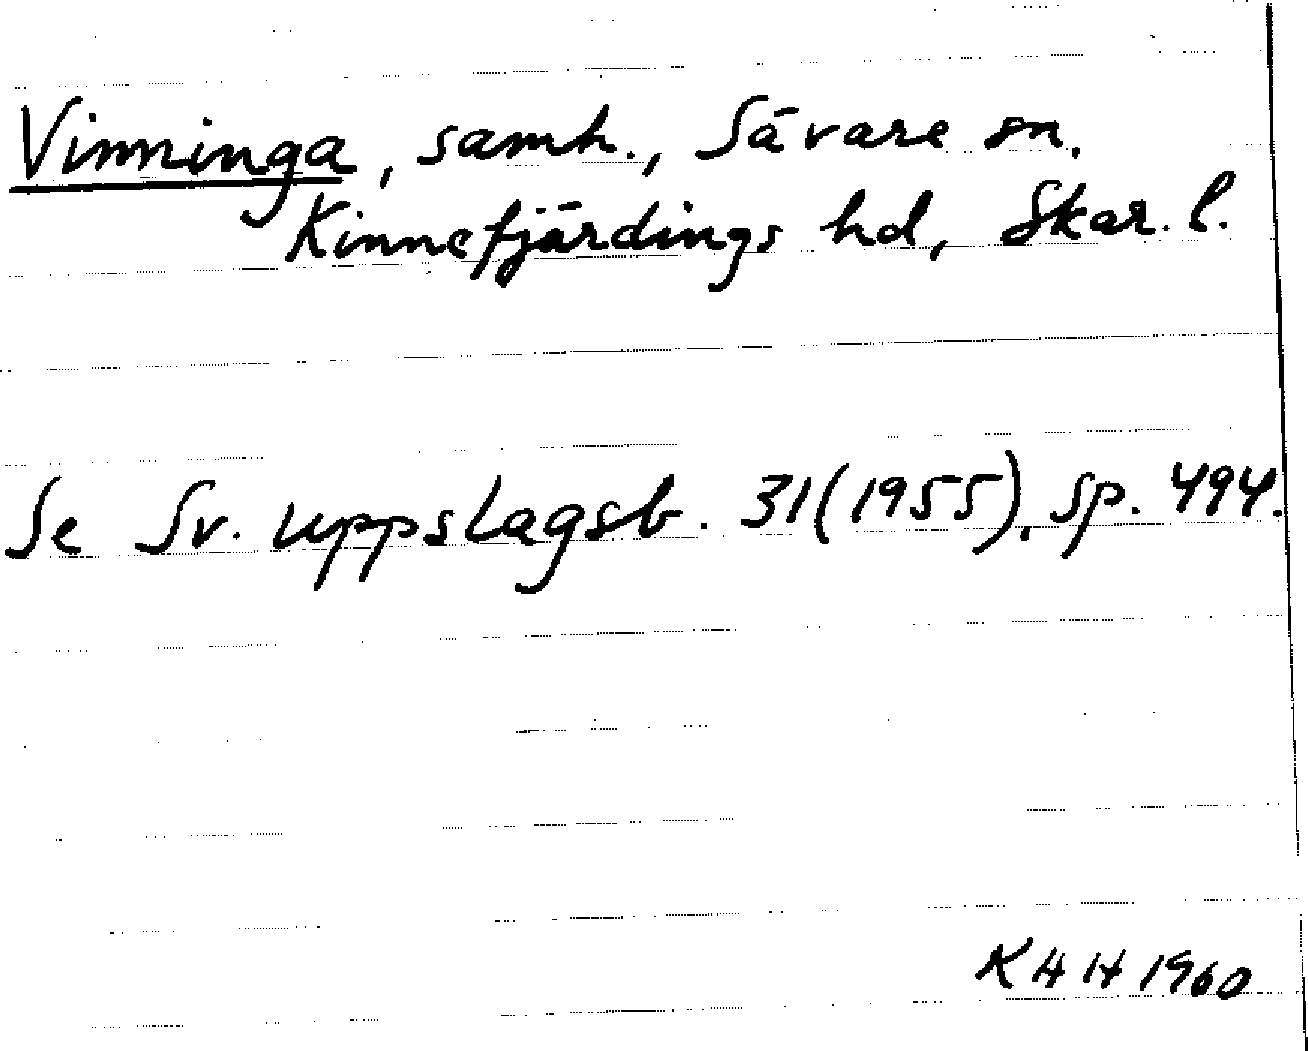 Vinninga, samh., Sävare sn,
Kinnefjärdings hd, Skar. l.
Se Sv. uppslagsb. 31 (1955), sp. 494.
K H H 1960